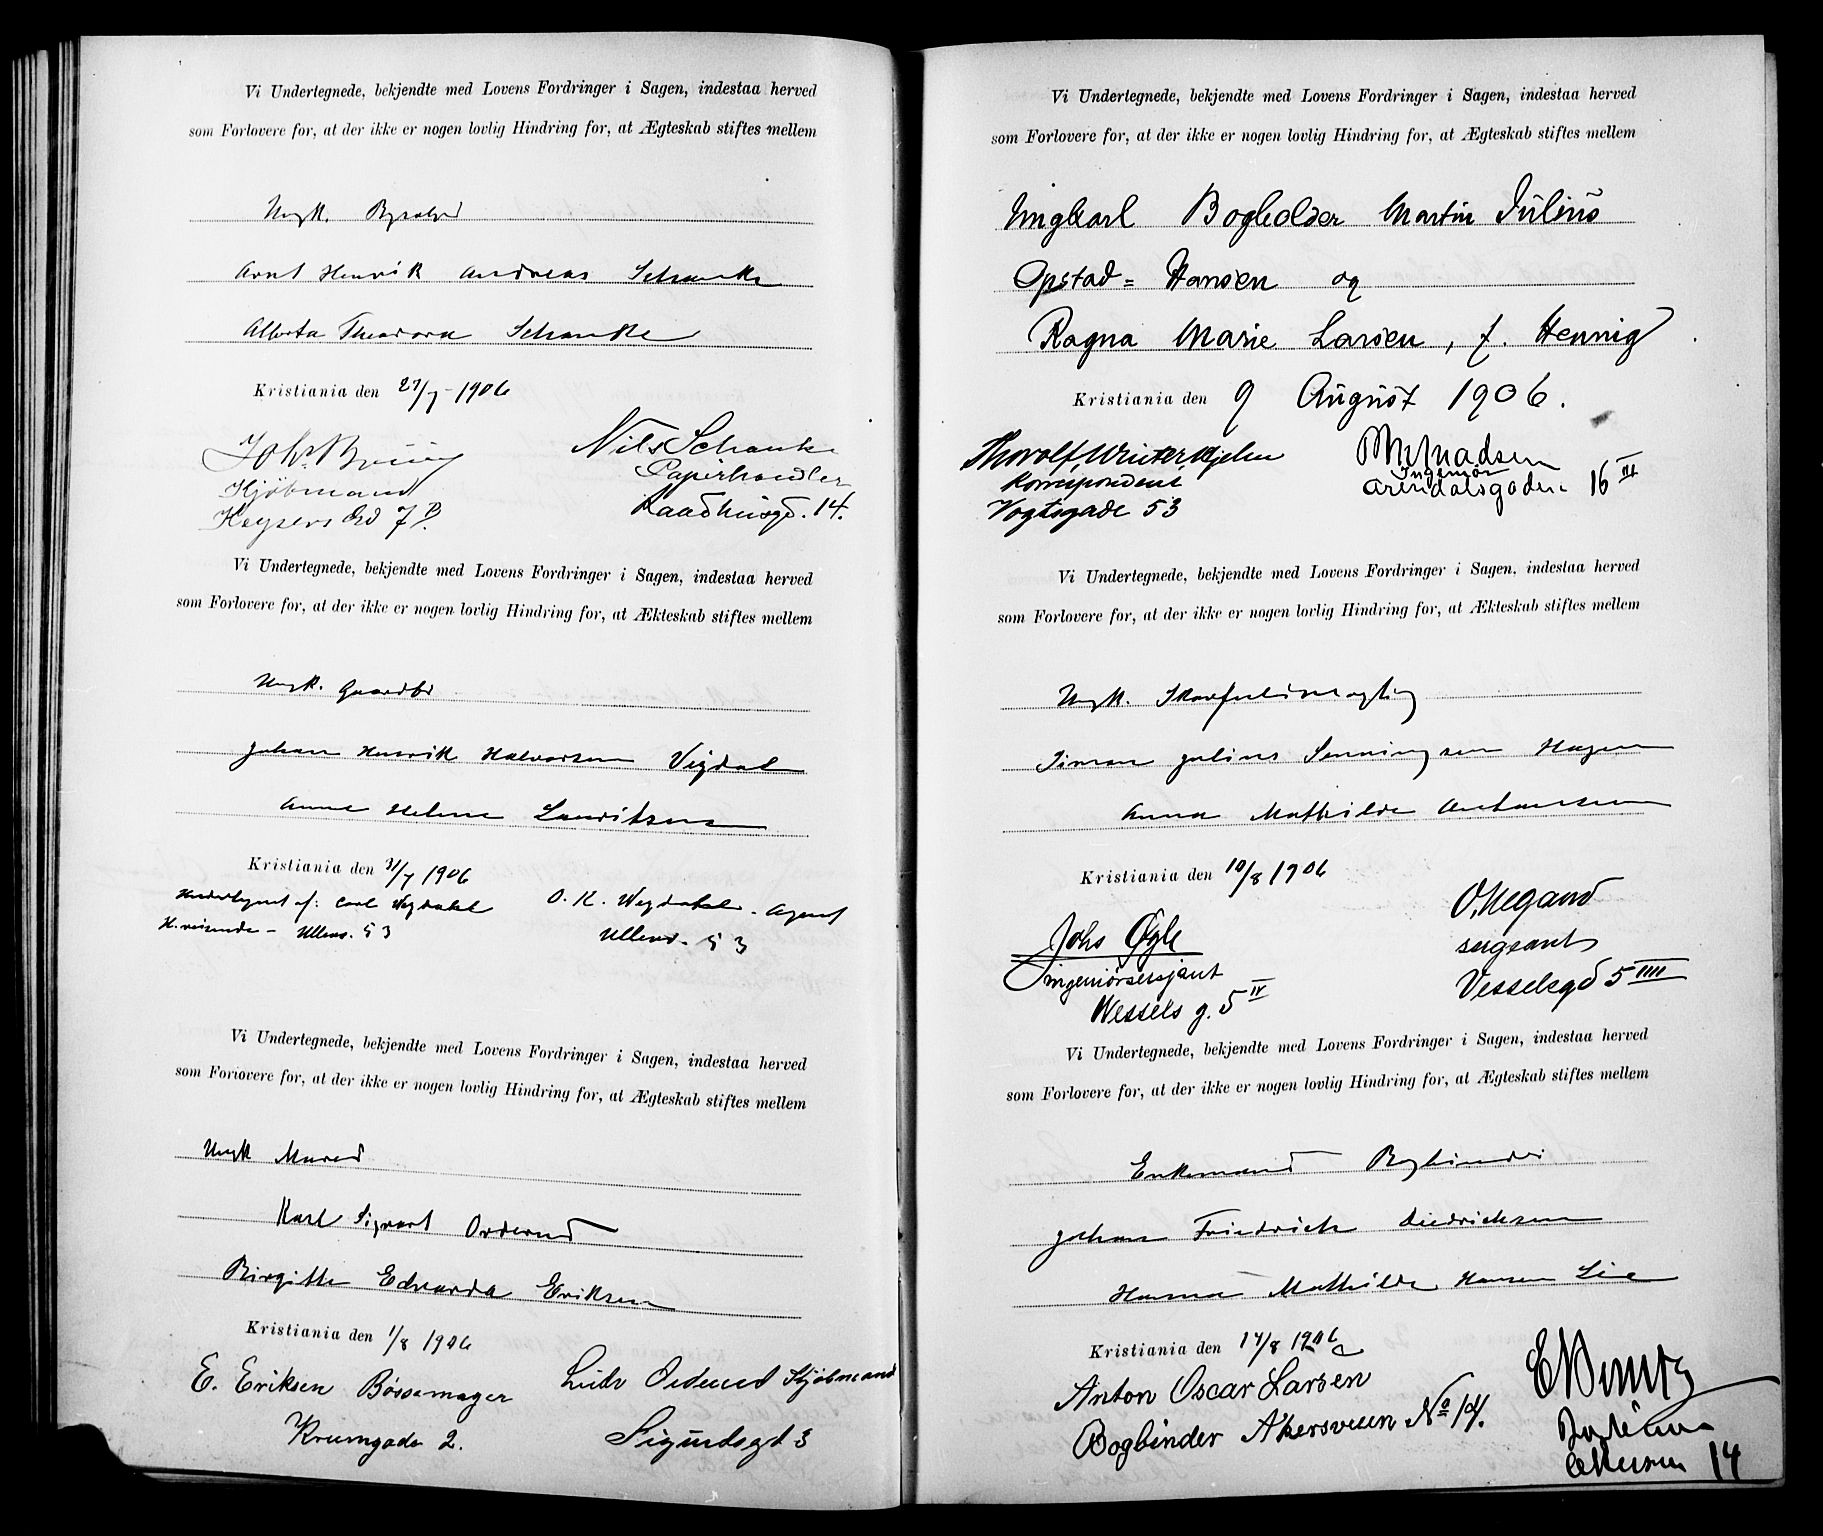 Vi Undertegnede, bekjendte med Lovens Fordringer i Sagen, indestaa herved
som Forlovere for, at der ikke er nogen lovlig Hindring for, at Ægteskab stiftes mellem
Ungk.
Arnt Henrik Andreas Schanke
Alberta Theodora Schanke
Kristiania den 27/7-1906
Kjøbmand
Keysers Gd 7 B.
Nils Schanke
Papirhandler
Raadhusgd. 14.
Vi Undertegnede, bekjendte med Lovens Fordringer i Sagen, indestaa herved
som Forlovere for, at der ikke er nogen lovlig Hindring for, at Ækteskab stiftes mellem
Ungk. Gaardbr
Johan Henrik Halvorsen Vigdal
Anna Helene Lauritsen
Kristiania den 31/7 1906
Undertegnet af: Carl Wegdahl
H.reisende - Ullevs. 53
O. K. Wegdahl. Agent
Ullevs. 53
Vi Undertegnede, bekjendte med Lovens Fordringer i Sagen, indestaa herved
som Forlovere for, at der ikke er nogen lovlig Hindring for, at Ægteskab stiftes mellem
Ungk Murer
Karl Sigvart Orderud
Birgitte Edvarda Eriksen
Kristiania den 1/8 1906
E. Eriksen Bøssemager
Krumgade 2.
Ludv Orderud Kjøbmand
Sigurdsgt 3
Vi Undertegnede, bekjendte med Lovens Fordringer i Sagen, indestaa herved
som Forlovere for, at der ikke er nogen lovlig Hindring for, at Ægteskab stiftes mellem
Ungkarl Bogholder Martin Julius
Opstad=Hansen og
Ragna Marie Larsen, f. Hennig
Kristiania den 9 August 1906.
Thorolf Winter Hjelm
Korrespondent
Vogtsgade 53
Ingeniør
Arendalsgaden 16 III
Vi Undertegnede, bekjendte med Lovens Fordringer i Sagen, indestaa herved
som Forlovere for, at der ikke er nogen lovlig Hindring for, at Ækteskab stiftes mellem
Ungk. Skovfuldmægtig
Simon Julius Henningsen Hagen
Anna Mathilde Antonsen
Kristiania den 10/8 1906
Johs Øgle
ingeniørsersjant
Wessels g. 5 IV
O. Wegand
sergeant
Vesselsgd 5 IIII
Vi Undertegnede, bekjendte med Lovens Fordringer i Sagen, indestaa herved
som Forlovere for, at der ikke er nogen lovlig Hindring for, at Ægteskab stiftes mellem
Enkemand Bogbinder
Johan Friedrich Diedrichsen
Hanna Mathilde Hansen Lie
Kristiania den 17/8 1906
Anton Oscar Larsen
Bogbinder Akersveien No 14.
14